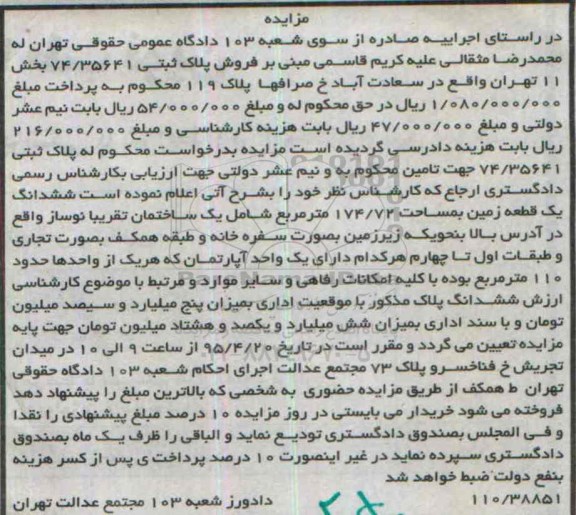 مزایده
در راستای اجراییه صادره از سوی شعبه ۱۰۳ دادگاه عمومی حقوقی تهران له
محمدرضا مثقالی علیه کریم قاسمی مبنی بر فروش پلاک ثبتی ۷۴/۳۵۶۴۱ بخش
۱۱ تهران واقع در سعادت آباد خ صرافها پلاک ۱۱۹ محکوم به پرداخت مبلغ
۱/۰۸۰/۰۰۰/۰۰۰ ریال در حق محکوم له و مبلغ ۵۴/۰۰۰/۰۰۰ ریال بابت نیم عشر
دولتی و مبلغ ۴۷/۰۰۰/۰۰۰ ریال بابت هزینه کارشناسی و مبلغ ۲۱۶/۰۰۰/۰۰۰
ریال بابت هزینه دادرسی گردیده است مزایده بدرخواست محکوم له پلاک ثبتی
۷۴/۳۵۶۴۱ جهت تامین محکوم به و نیم عشر دولتی جهت ارزیابی بکارشناس رسمی
دادگستری ارجاع که کارشناس نظر خود را بشرح آتی اعلام نموده است ششدانگ
یک قطعه زمین بمساحت ۱۷۴/۷۲ مترمربع شامل یک ساختمان تقریبا نوساز واقع
در آدرس بالا بنحویکه زیرزمین بصورت سفره خانه و طبقه همکف بصورت تجاری
و طبقات اول تا چهارم هرکدام دارای یک واحد آپارتمان که هریک از واحدها حدود
۱۱۰ مترمربع بوده با کلیه امکانات رفاهی و سایر موارد و مرتبط با موضوع کارشناسی
ارزش ششدانگ پلاک مذکور با موقعیت اداری بمیزان پنج میلیارد و سیصد میلیون
تومان و با سند اداری بمیزان شش میلیارد و یکصد و هشتاد میلیون تومان جهت پایه
مزایده تعیین می گردد و مقرر است در تاریخ ۹۵/۴/۲۰ از ساعت ۹ الی ۱۰ در میدان
تجریش خ فناخسرو پلاک ۷۳ مجتمع عدالت اجرای احکام شعبه ۱۰۳ دادگاه حقوقی
تهران ط همکف از طریق مزایده حضوری به شخصی که بالاترین مبلغ را پیشنهاد دهد
فروخته می شود خریدار می بایستی در روز مزایده ۱۰ درصد مبلغ پیشنهادی را نقدا
و فی المجلس بصندوق دادگستری تودیع نماید و الباقی را ظرف یک ماه بصندوق
دادگستری سپرده نماید در غیر اینصورت ۱۰ درصد پرداختی پس از کسر هزینه
بنفع دولت ضبط خواهد شد
۱۱۰/۳۸۸۵۱ دادورز شعبه ۱۰۳ مجتمع عدالت تهران